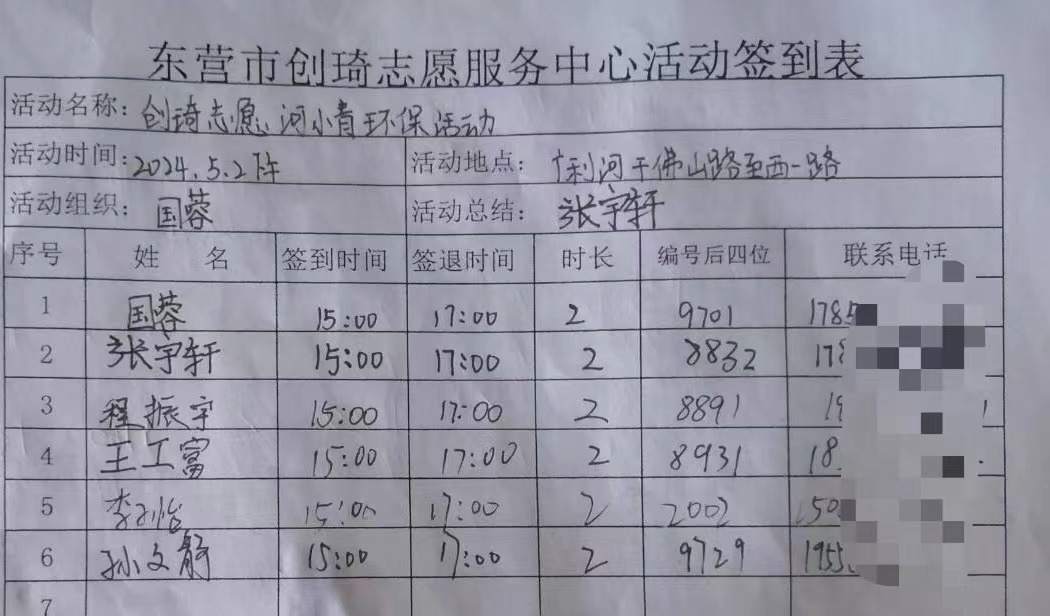 东营市创琦志愿服务中心活动签到表
活动名称：创琦志愿河小青环保活动
活动时间：2024.5.2下午 活动地点：利河千佛山路至西一路
活动组织：国蓉 活动总结：张宇轩
序号 姓 名 签到时间 签退时间 时长 编号后四位 联系电话
1 国蓉 15:00 17:00 2 9701 1785
2 张宇轩 15:00 17:00 2 8832 178
3 程振宇 15:00 17:00 2 8891 19
4 王工富 15:00 17:00 2 8931 18
5 李怡 15:00 17:00 2 2002 150
6 孙文静 15:00 17:00 2 9729 1955
7